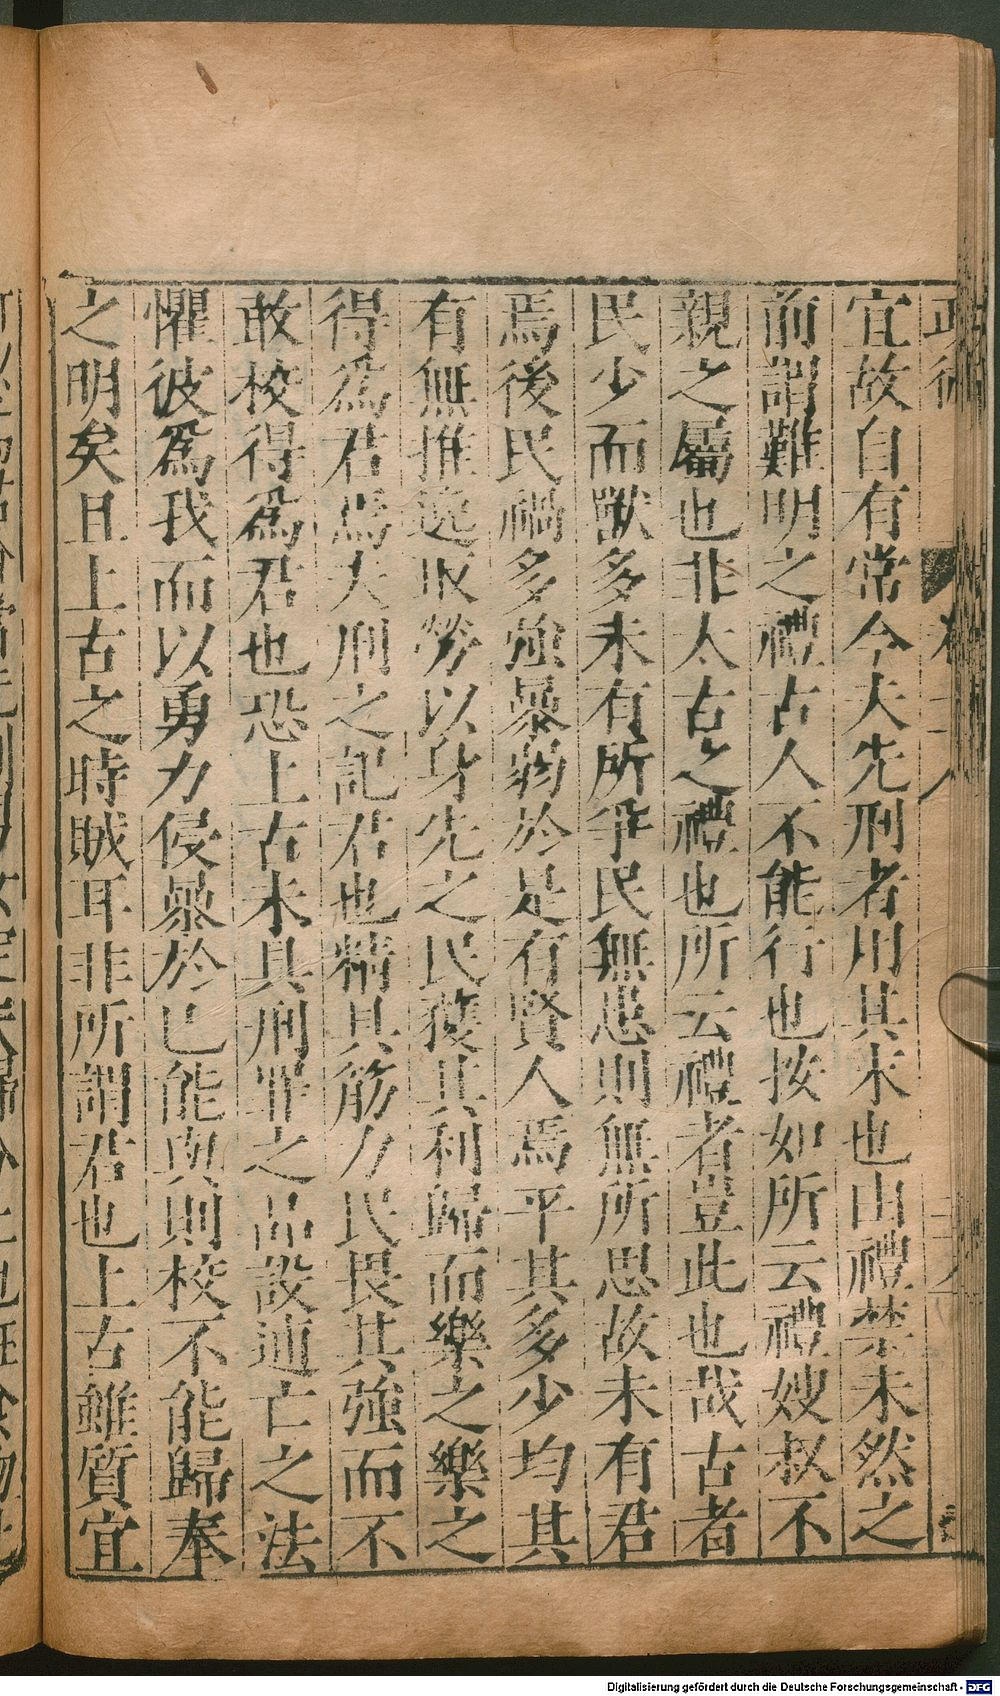 宜故自有常今夫先刑者用其末也由禮禁未然之
前謂難明之禮古人不能行也按如所云禮嫂叔不
親之屬也非太古之禮也所云禮者豈此也哉古者
民少而獸多未有所爭民無患則無所思故未有君
焉後民禍多強暴弱於是有賢人焉平其多少均其
有無推逸取勞以身先之民獲其利歸而樂之樂之
得爲君焉夫刑之記君也精具筋力民畏其強而不
敢校得爲君也恐上古未具刑罪之品設逋亡之法
懼彼爲我而以勇力侵暴於已能與則校不能歸奉
之明矣且上古之時賊耳非所謂君也上古雖質宜
Digitalisierung gefördert durch die Deutsche Forschungsgemeinschaft - DFG